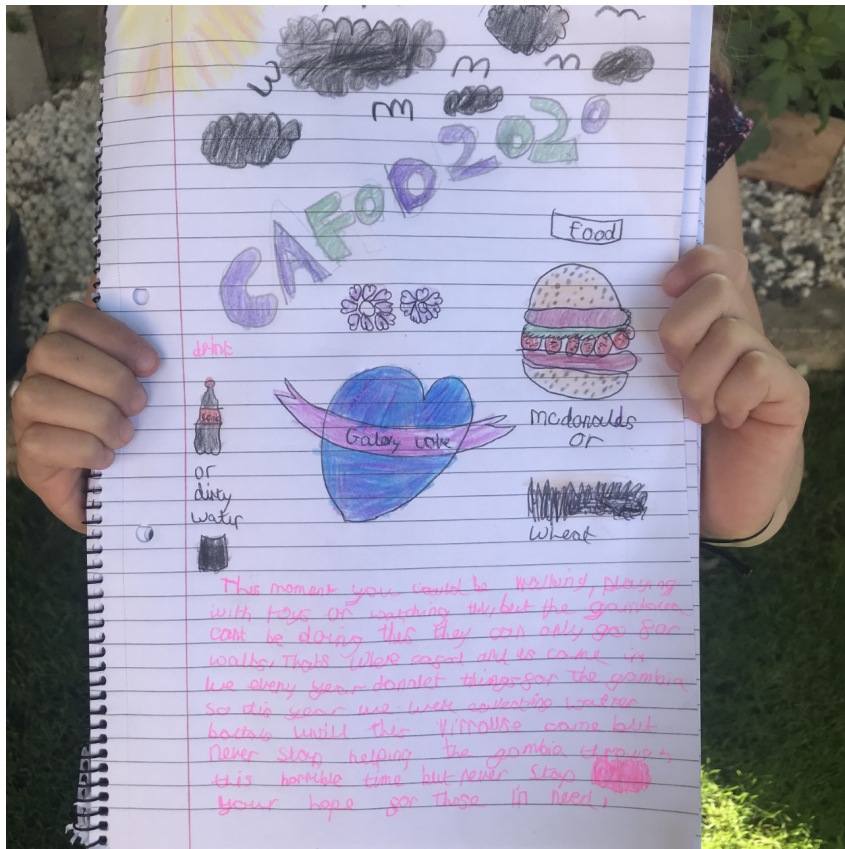 CAFOD2020
Food
drink
Coke
Galaxy
mcdonalds
or
or
dirty
water
wheat
This moment you could be walking, playing
with toys or watching tv, but the gambian
cant be doing this they can only go for
walks, Thats where cafod and us come in
we every year donnet things for the gambia
so dis year we were collecting watter
bottols untill this Virrouse came but
never stop helping the gambia through
this horrible time but never stop
your hope for those in need.